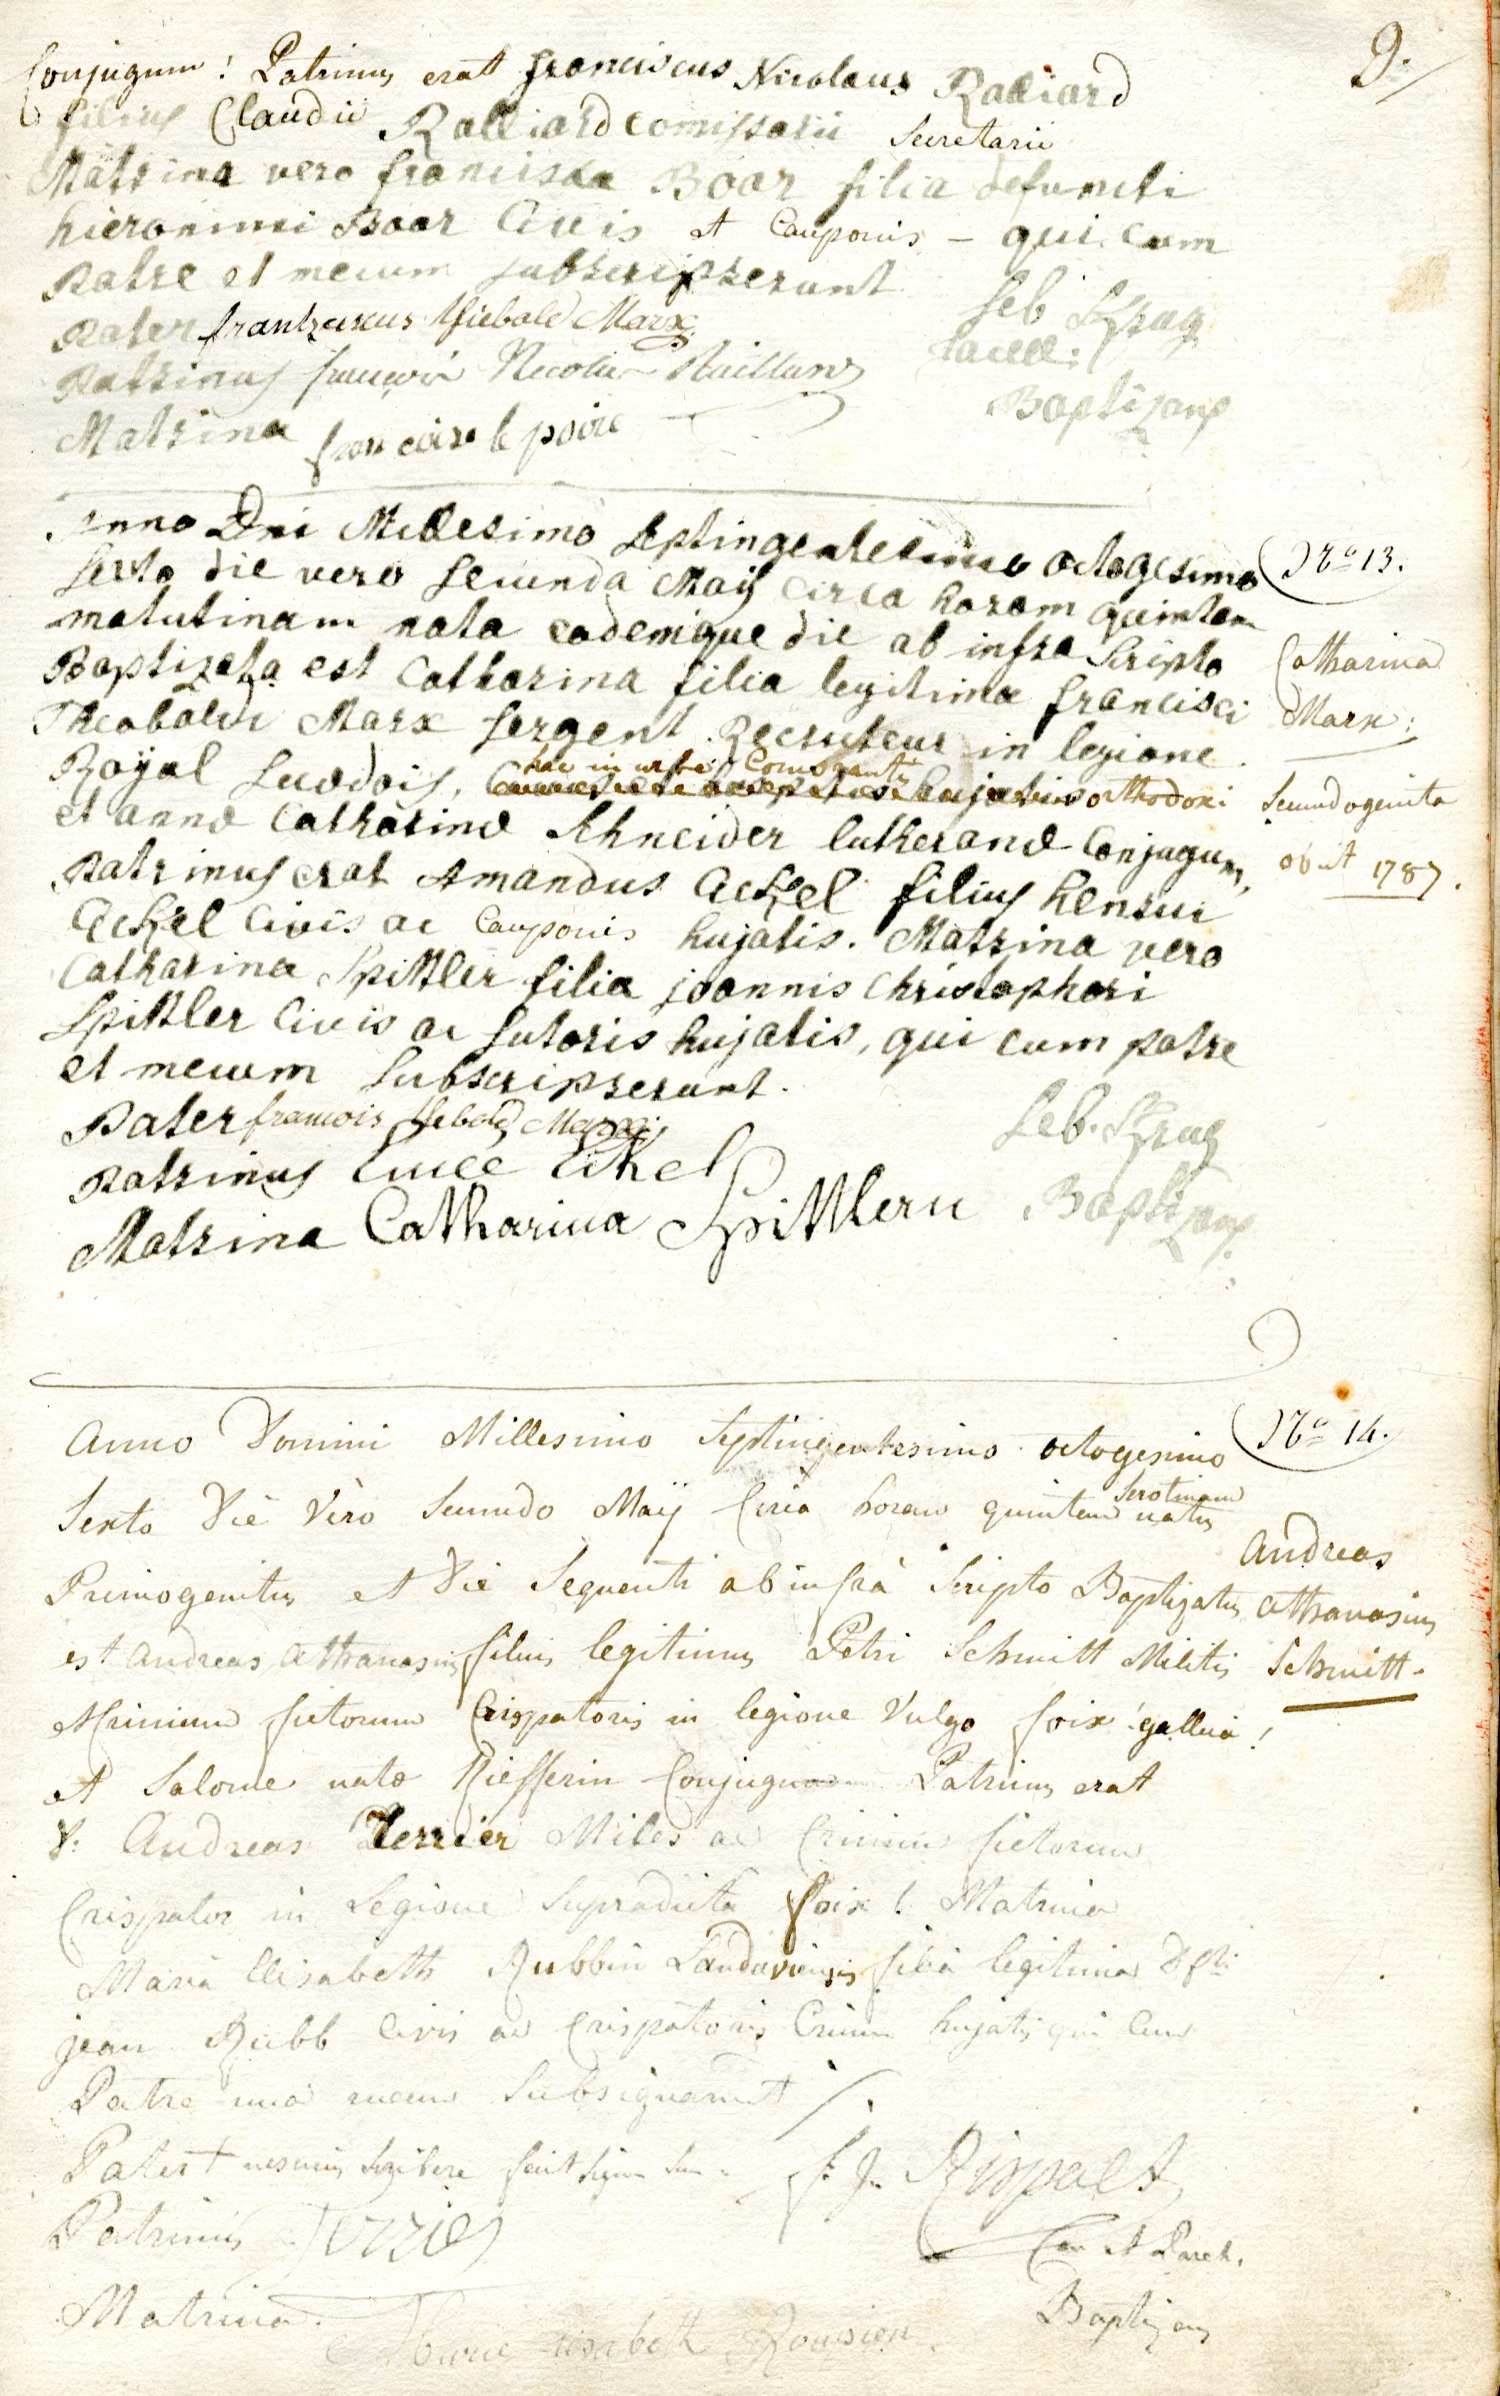 9.
Conjugum! Patrinus erat franciscus Nicolaus Ralliard
filius Claudii Ralliard Comissarii Secretarii
Matrina vero francisca Boar filia defuncti
hieronimi Boar Civis et Cauponis – qui cum
patre et mecum subscripserunt
Pater frantzciscus thiebold Marx Seb Krug
Patrinus françois Nicolas Raillard Sacell:
Matrina francoise le poire Baptizans
Anno Dni Millesimo Septingentesimo octogesimo
Sexto die vero Secunda Maij circa horam quintam
matutinam nata eademque die ab infra Scripto
Baptizata est Catharina filia legitima francisci
Theobaldi Marx Sergent Recruteur in legione
Royal Suedois, hac in urbe Comorantis orthodoxi
et annæ Catharinæ Schneider lutheranæ Conjugum,
Patrinus erat Amandus Ackel filius henrici
Ackel Civis ac Cauponis hujatis. Matrina vero
Catharina Spittler filia joannis Christophori
Spittler Civis ac Sutoris hujatis, qui cum patre
et mecum Subscripserunt.
Pater francois thiebold Marx Seb. Krug
Patrinus Ackel Baptizans
Matrina Catharina Spittlern
Nro 13.
Catharina
Marx:
Secundogenita
obiit 1787.
Anno Domini Millesimo Septingentesimo octogesimo
Sexto Die Vero Secundo Maij Circa horam quintam Serotinam natus
Primogenitus et Die Sequenti ab infrà Scripto Baptizatus
est Andreas Athanasius filius legitimus Petri Schmitt Militis
Crinium fictorum Crispatoris in legione Vulgo foix! gallica!
et Salome nata Riefferin Conjugum Patrinus erat
D: Andreas Terrier Miles ac Crinium fictorum
Crispator in Legione Supradicta foix! Matrina
Maria Elisabeth Rubbin Landaviensis filia legitima Dfti
jean Rubb Civis ac Crispatoris Crinium hujatis qui Cum
Patre unà mecum Subsignarunt /.
Pater + nescius scribere fecit signum suum F. J. Rispalet
Patrinus Terrier Can et Paroch.
Matrina Marie Elisabeth Baptizans
Nro 14.
Andreas
Athanasius
Schmitt.